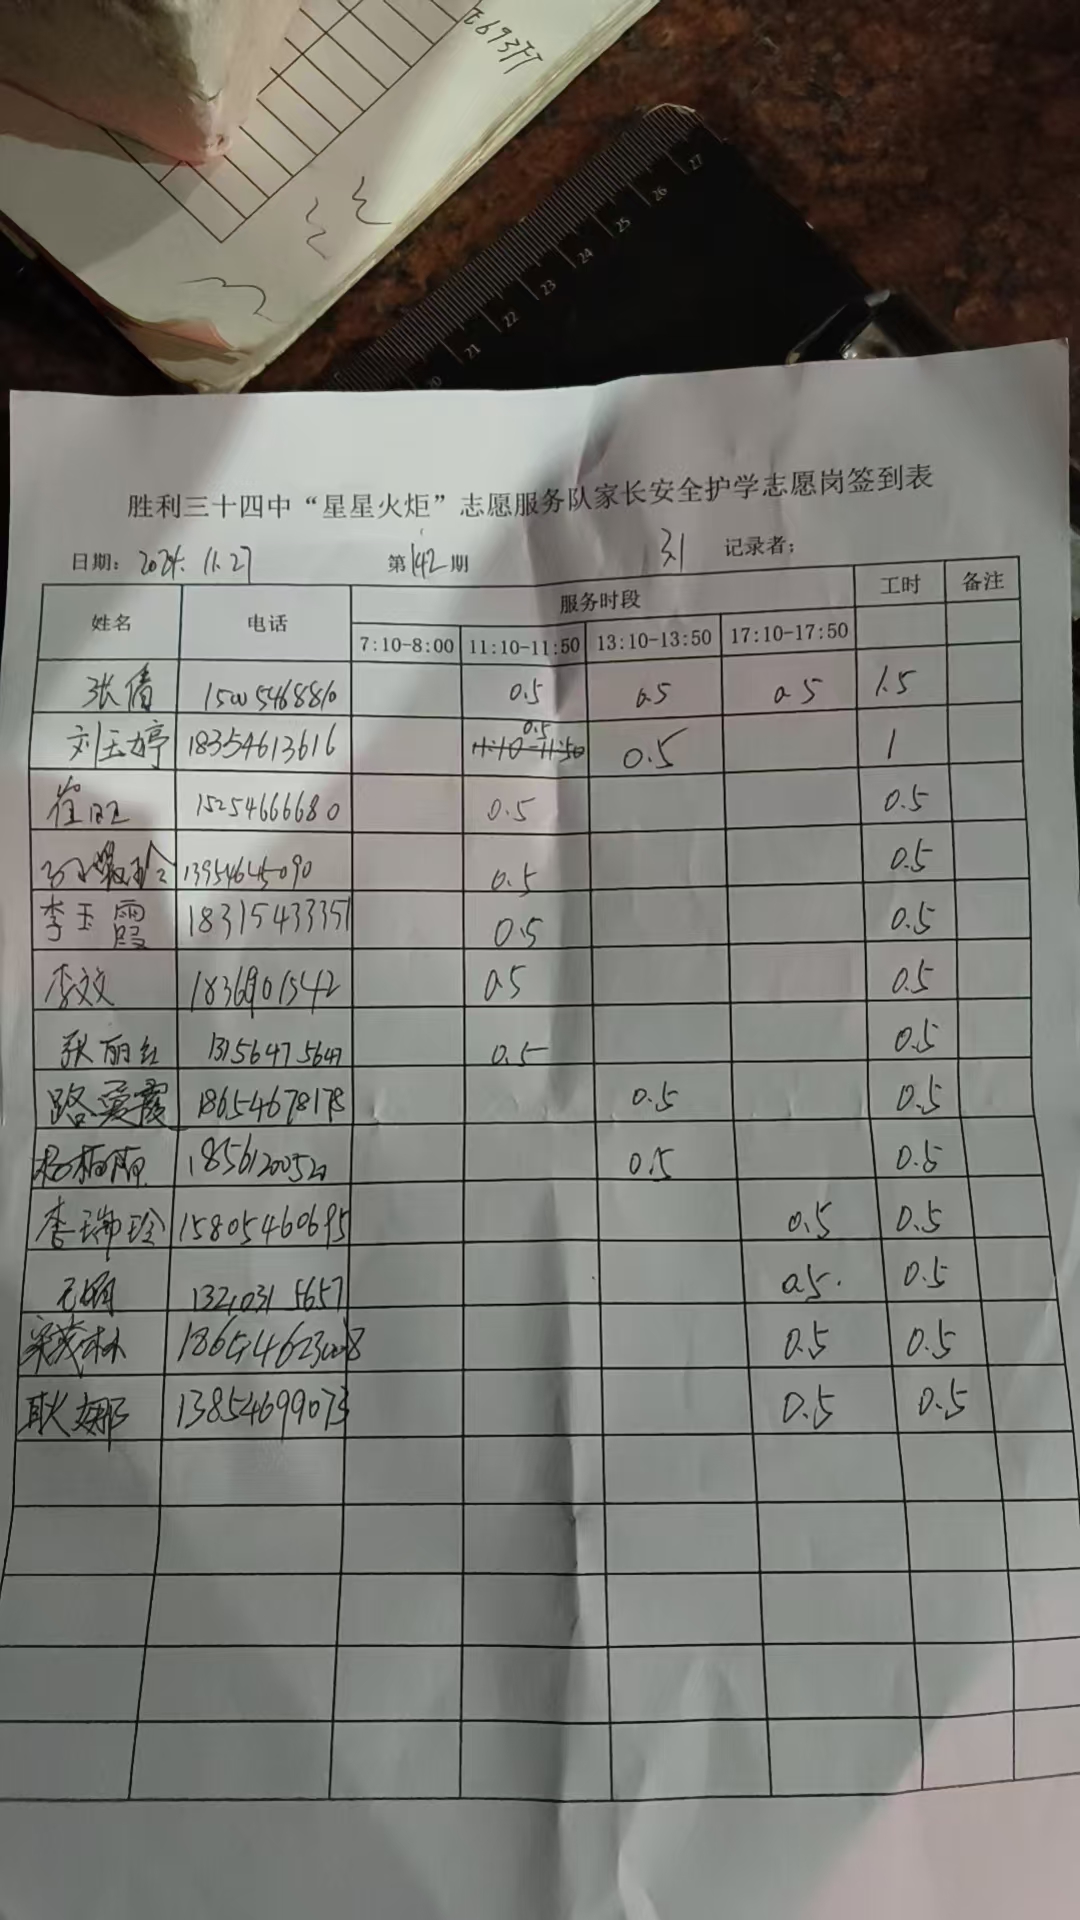 E693开
20 21 22 23 24 25 26 27
胜利三十四中“星星火炬”志愿服务队家长安全护学志愿岗签到表
日期: 2024. 11. 27 第 142 期 记录者:
姓名 电话 服务时段 工时 备注
7:10-8:00 11:10-11:50 13:10-13:50 17:10-17:50
张倩 15005468810 0.5 0.5 0.5 1.5
0.5
刘玉婷 18354613616 11:10-11:50 0.5 1
崔旺 15254666680 0.5 0.5
13954645090 0.5 0.5
李玉霞 18315433351 0.5 0.5
李文文 0.5 0.5
张丽红 0.5 0.5
路爱霞 18654678178 0.5 0.5
0.5 0.5
李瑞玲 15805460695 0.5 0.5
13210315657 0.5 0.5
0.5 0.5
耿娜 13854699073 0.5 0.5